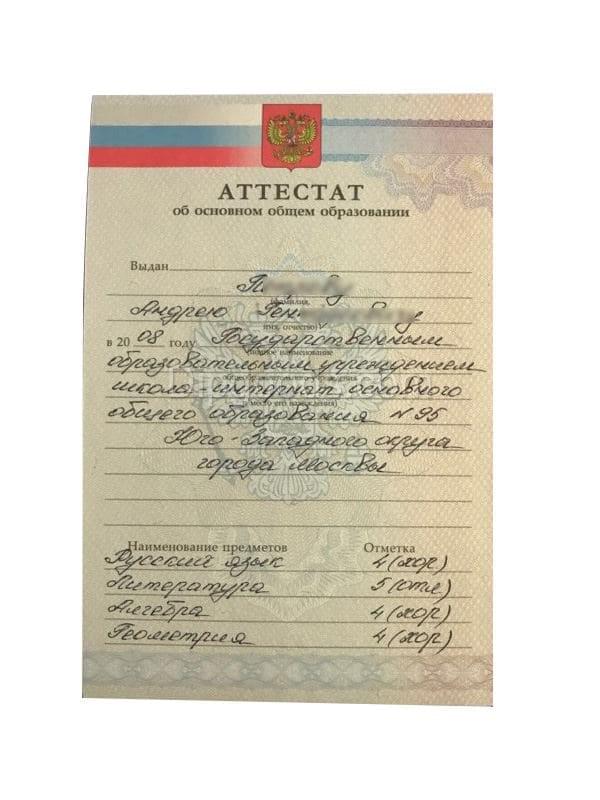 АТТЕСТАТ
об основном общем образовании
Выдан
(фамилия,
Андрею
имя, отчество)
в 2008 году Государственным
(полное наименование
образовательным учреждением
общеобразовательного учреждения
школа-интернат основного
и место его нахождения)
общего образования №95
Юго-Западного округа
города Москвы
Наименование предметов Отметка
Русский язык 4 (хор)
Литература 5 (отл)
Алгебра 4 (хор)
Геометрия 4 (хор)